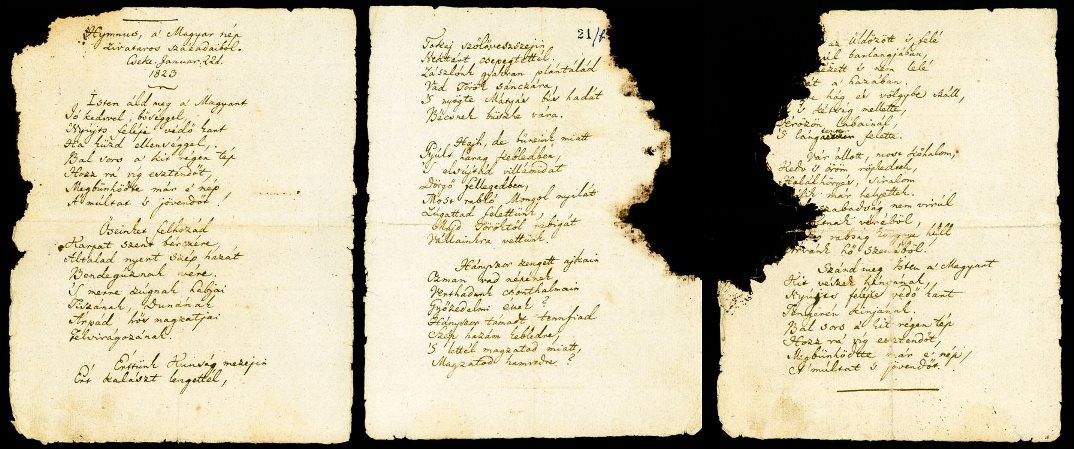 Hymnus, a' Magyar nép
zivataros századaiból.
Cseke. Januar. 22d.
1823
Isten áld meg a' Magyart
Jó kedvvel, bőséggel,
Nyújts feléje védő kart
Ha küzd ellenséggel;
Bal sors a' kit régen tép
Hozz rá víg esztendőt,
Megbűnhődte már e' nép
A' múltat 's jövendőt!
Őseinket felhozád
Kárpát szent bérczére,
Általad nyert szép hazát
Bendegúznak vére.
'S merre zúgnak habjai
Tiszának, Dunának
Árpád hős magzatjai
Felvirágozának.
Értünk Kunság mezején
Ért kalászt lengettél,
21/1
Tokaj szőlővesszein
Nektárt csepegtettél.
Zászlónk gyakran plántálád
Vad Török sáncára,
'S nyögte Mátyás bús hadát
Bécsnek büszke vára.
Hajh, de bűneink miatt
Gyúlt harag kebledben,
'S elsújtád villámidat
Dörgő fellegedben,
Most rabló Mongol nyilát
Zúgattad felettünk,
Majd Töröktől rabigát
Vállainkra vettünk.
Hányszor zengett ajkain
Ozman vad népének
Vert hadunk csonthalmain
Győzedelmi ének?
Hányszor támadt tennfiad
Szép hazám kebledre,
'S lettél magzatod miatt
Magzatod hamvedre?
az üldözött 's felé
barlangjában,
's nem lelé
a' hazában.
hág és völgybe száll,
's kétség mellette,
Vérözön lábainál,
'S lángtenger felette.
Vár állott, most kőhalom,
Kedv 's öröm röpkedtek,
Halálhörgés, siralom
már helyettek.
szabadság nem virúl
véréből,
rabság könnye hull
hő szeméből.
Szánd meg Isten a' Magyart
Kit vészek hányanak,
Nyújts feléje védő kart
Tengerén kínjának.
Bal sors a' kit régen tép
Hozz rá víg esztendőt,
Megbűnhődte már e' nép
A' múltat 's jövendőt.